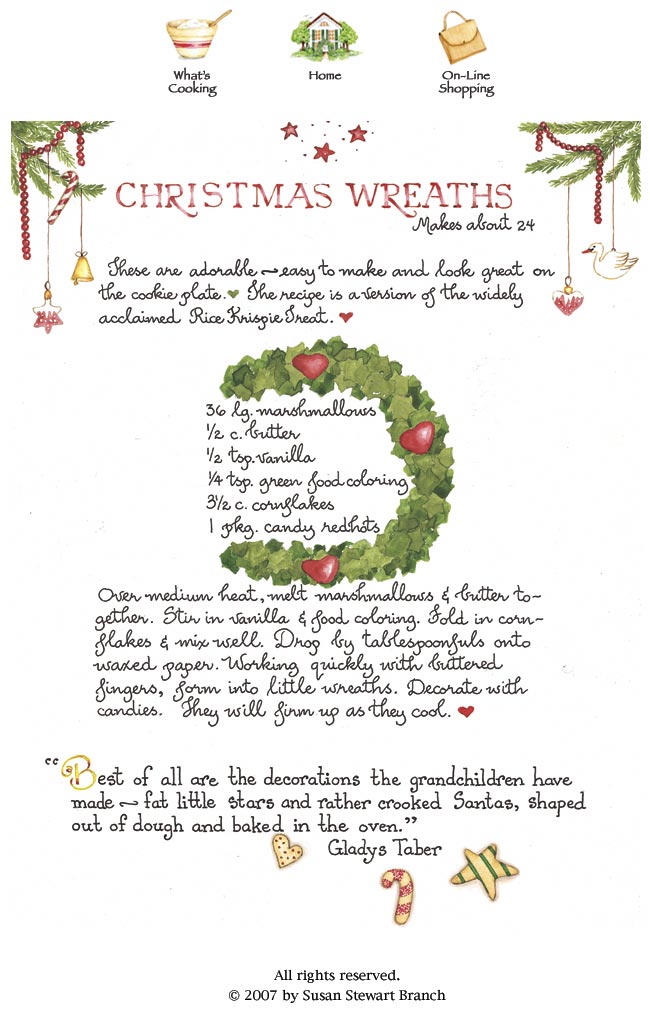 What's
Cooking
Home
On-Line
Shopping
CHRISTMAS WREATHS
Makes about 24
These are adorable ~ easy to make and look great on
the cookie plate. The recipe is a version of the widely
acclaimed Rice Krispie Treat.
36 lg. marshmallows
1/2 c. butter
1/2 tsp. vanilla
1/4 tsp. green food coloring
3 1/2 c. cornflakes
1 pkg. candy redhots
Over medium heat, melt marshmallows & butter to-
gether. Stir in vanilla & food coloring. Fold in corn-
flakes & mix well. Drop by tablespoonfuls onto
waxed paper. Working quickly with buttered
fingers, form into little wreaths. Decorate with
candies. They will firm up as they cool.
"Best of all are the decorations the grandchildren have
made ~ fat little stars and rather crooked Santas, shaped
out of dough and baked in the oven."
Gladys Taber
All rights reserved.
© 2007 by Susan Stewart Branch